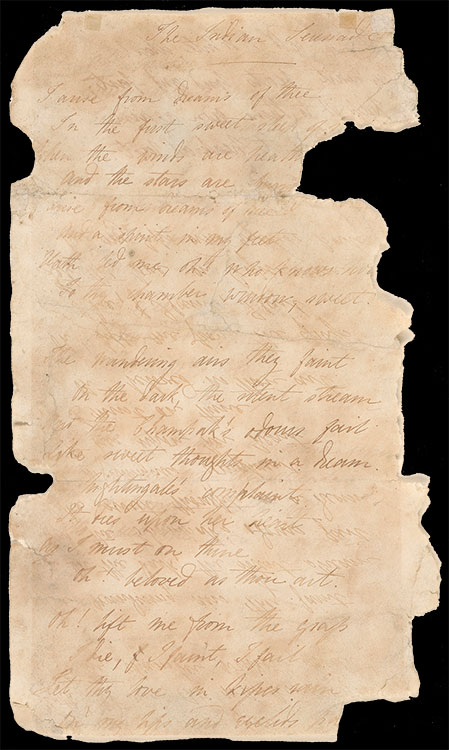 The Indian Serenade
I arise from dreams of thee
In the first sweet sleep of
When the winds are
and the stars are
from dreams of thee
And a spirit in my feet
Hath led me, oh! who knows how
To thy chamber window, sweet!
The wandering airs they faint
On the dark, the silent stream
And the Champak's odours fail
Like sweet thoughts in a dream.
nightingale's complaint
It dies upon her
as I must on thine
Oh! beloved as thou art.
Oh! lift me from the grass
die, I faint, I fail
Let thy love in kisses rain
On my lips and eyelids